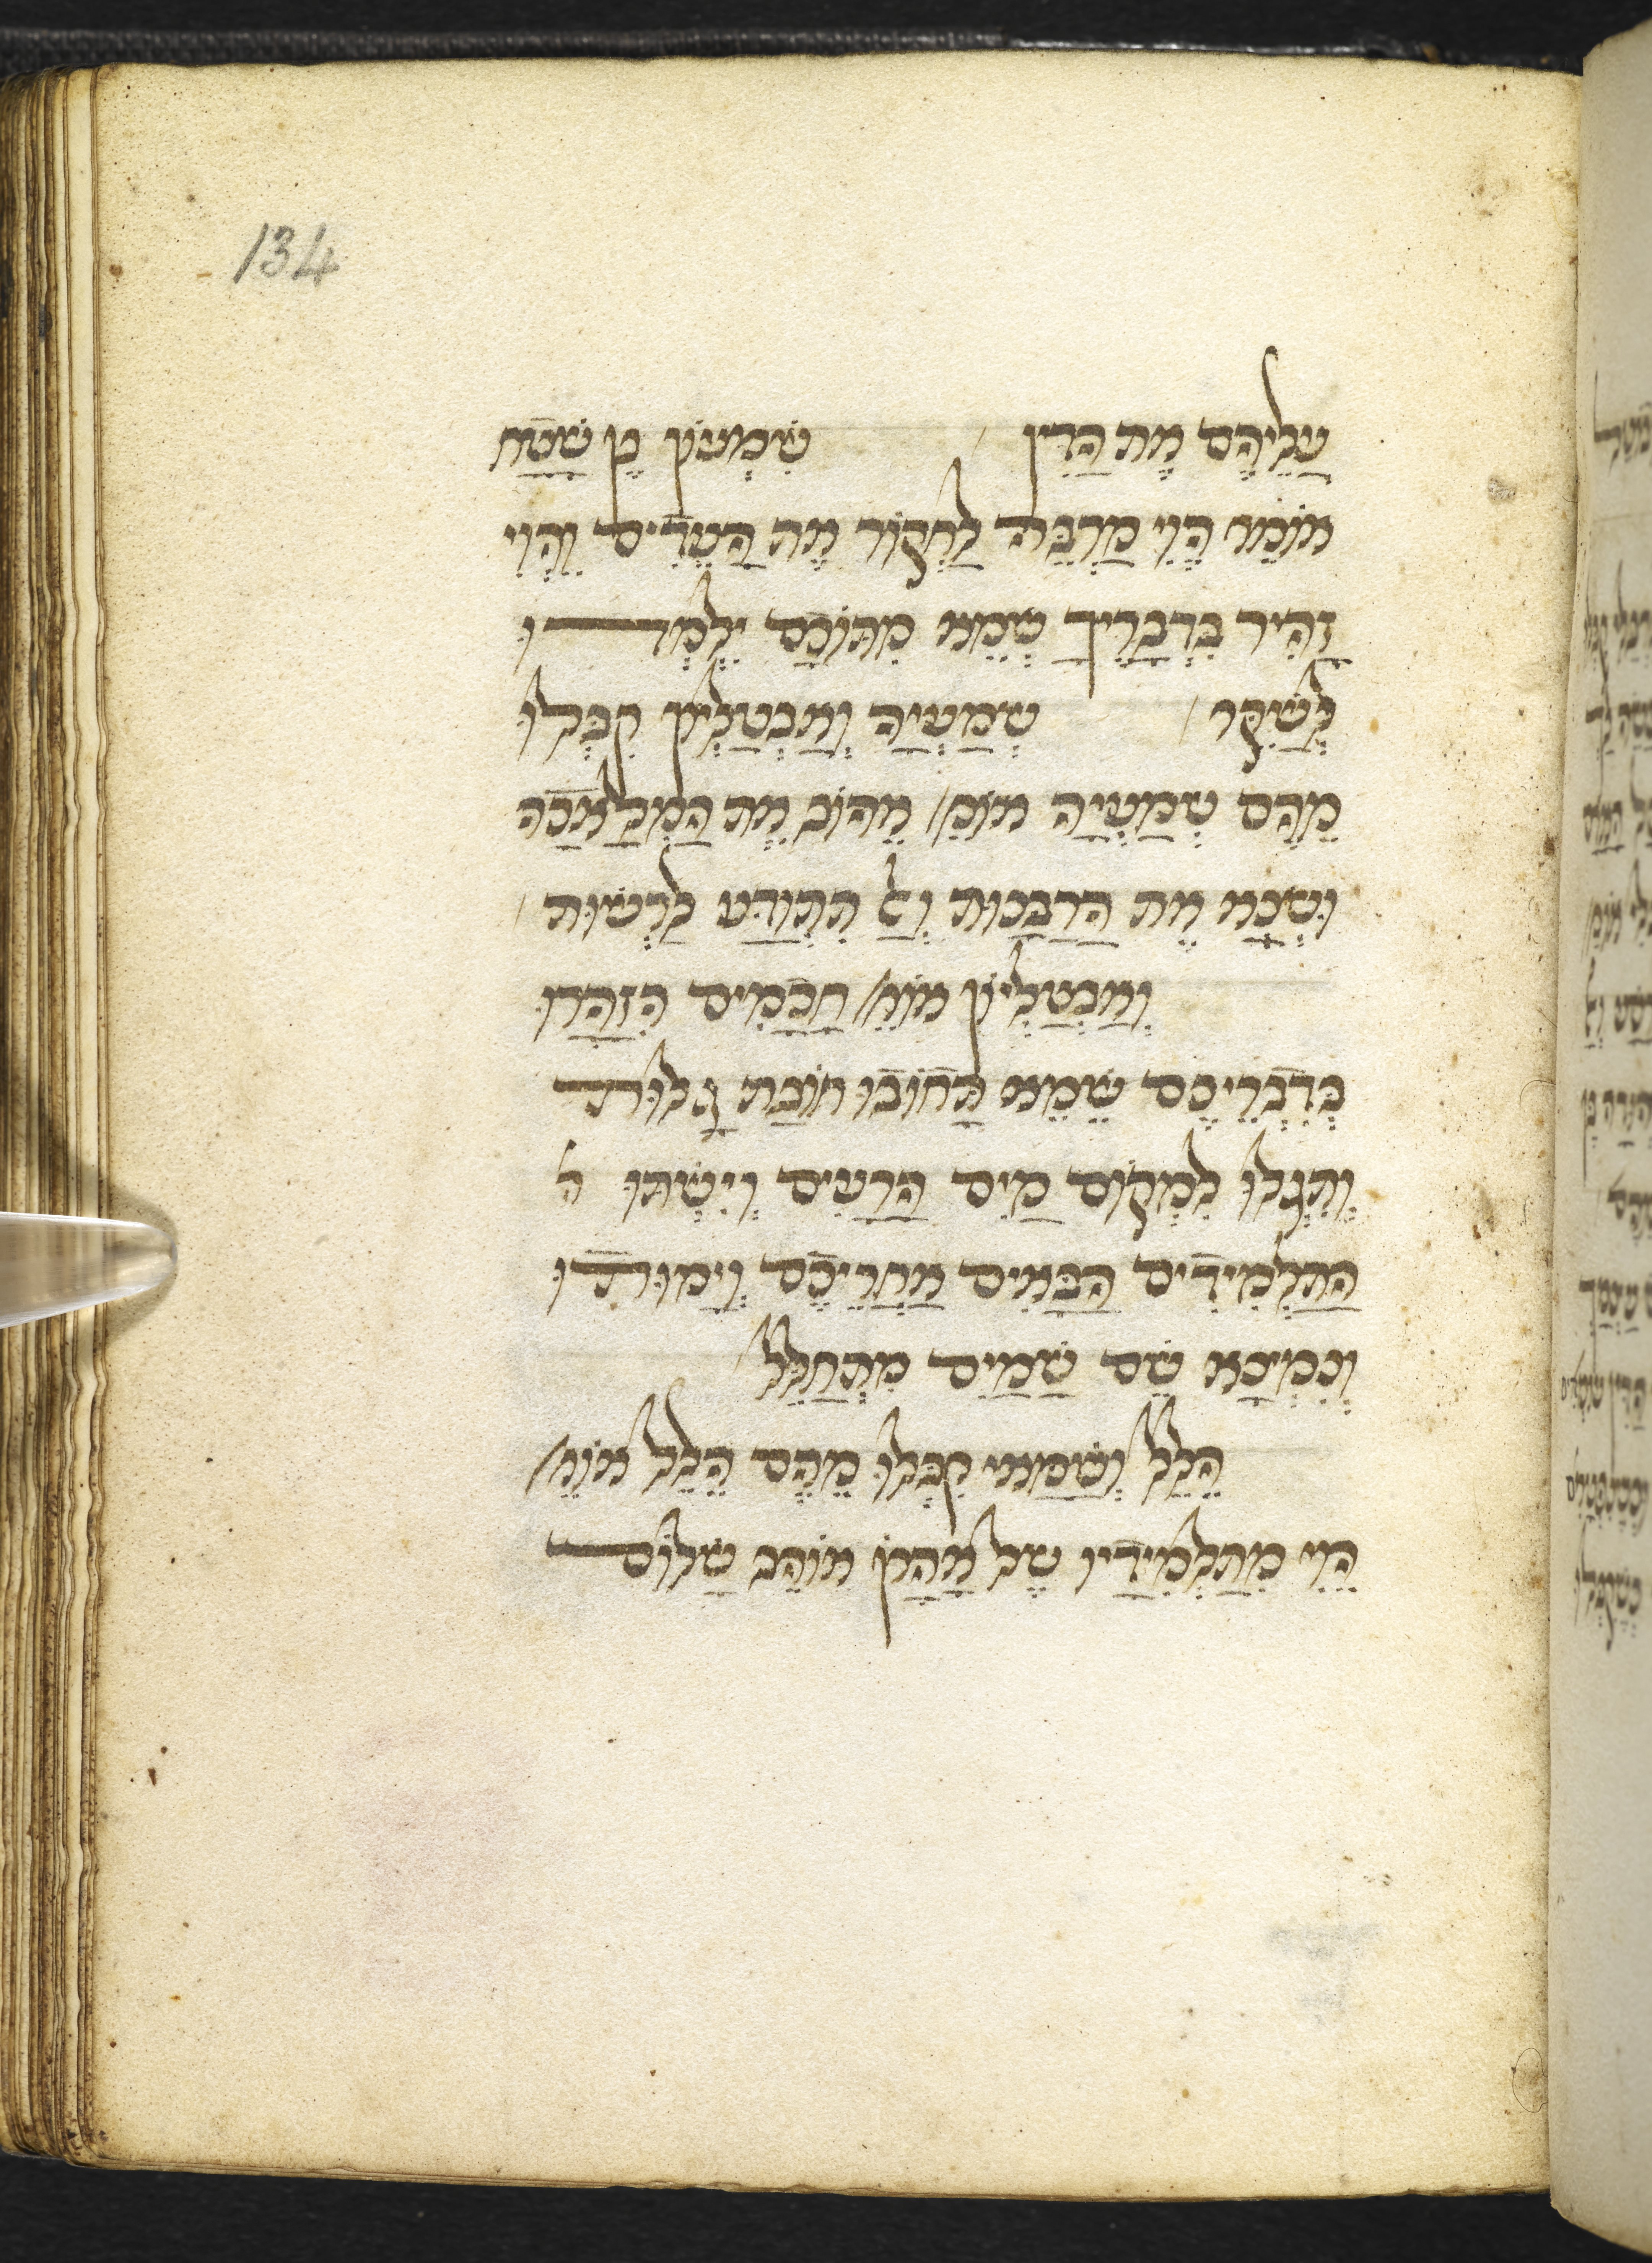 134
עֲלֵיהֶם אֶת הַדִּין / שִׁמְעוֹן בֶּן שָׁטַח
אוֹמֵר הֱוֵי מַרְבֶּה לַחְקוֹר אֶת הָעֵדִים וֶהֱוֵי
זָהִיר בִּדְבָרֶיךָ שֶׁמֵּא מִתּוֹכָם יִלְמְדוּ
לְשַׁקֵּר / שְׁמַעְיָה וְאַבְטַלְיוֹן קִבְּלוּ
מֵהֶם שְׁמַעְיָה אוֹמֵ/ אֱהוֹב אֶת הַמְּלָאכָה
וּשְׂנָא אֶת הָרַבָּנוּת וְאַל תִּתְוַדַּע לָרְשׁוּת /
וְאַבְטַלְיוֹן אוֹמֵ/ חֲכָמִים הִזָּהֲרוּ
בְּדִבְרֵיכֶם שֶׁמֵּא תָּחוֹבוּ חוֹבַת גָּלוּת
וְתִגְלוּ לִמְקוֹם מַיִם הָרָעִים וְיִשְׁתּוּ ה
הַתַּלְמִידִים הַבָּאִים אַחֲרֵיכֶם וְיָמוּתוּ
וְנִמְצָא שֵׁם שָׁמַיִם מִתְחַלֵּל /
הִלֵּל וְשַׁמַּאי קִבְּלוּ מֵהֶם הִלֵּל אוֹמֵ/
הֱוֵי מִתַּלְמִידָיו שֶׁל אַהֲרֹן אוֹהֵב שָׁלוֹם